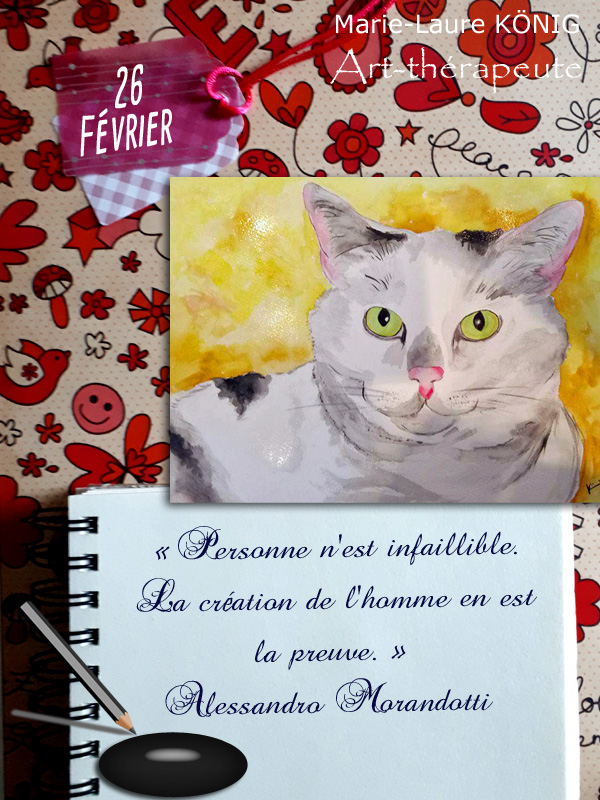 Marie-Laure KÖNIG
Art-thérapeute
26
FÉVRIER
peace
« Personne n'est infaillible.
La création de l'homme en est
la preuve. »
Alessandro Morandotti